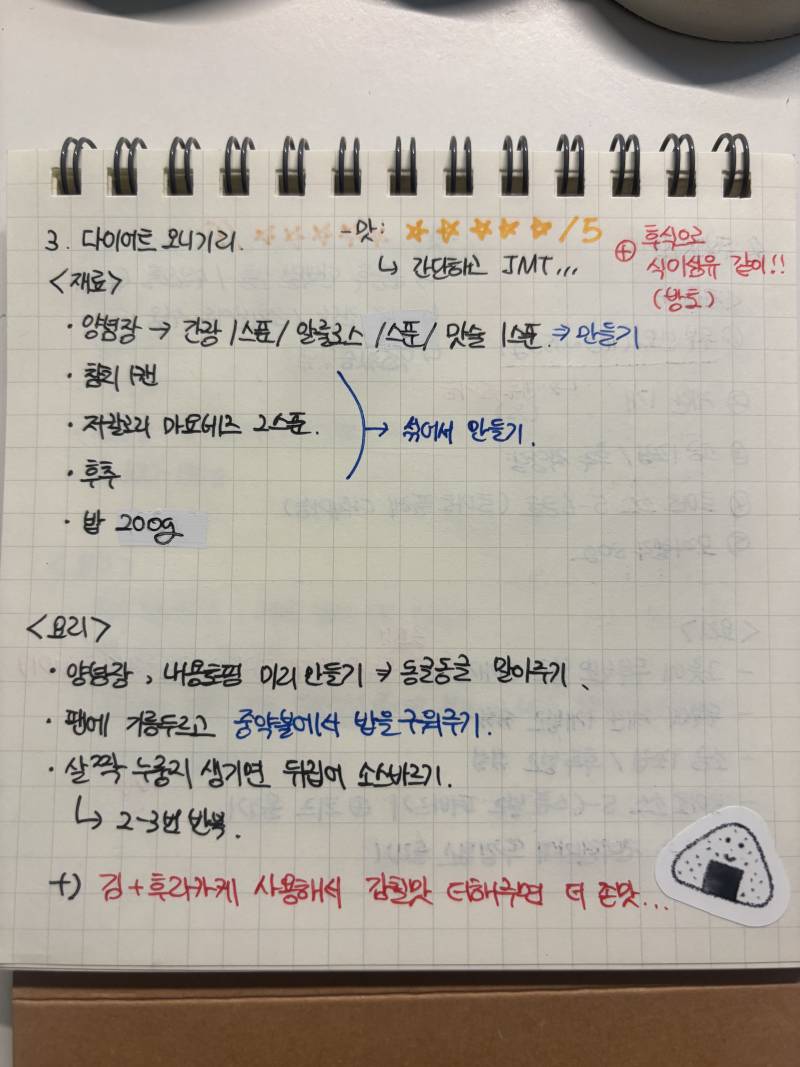 3. 다이어트 오니기리.
-맛: ☆☆☆☆☆/5
↳ 간단하고 JMT...
⊕ 후식으로
식이섬유 같이!!
(방토)
<재료>
· 양념장 → 간장 1스푼/ 알룰로스 1스푼/ 맛술 1스푼. ⇒ 만들기
· 참치 1캔
· 저칼로리 마요네즈 2스푼.
→ 섞어서 만들기.
· 후추
· 밥 200g
<요리>
· 양념장, 내용토핑 미리 만들기 ⇒ 동글동글 말아주기.
· 팬에 기름두르고 중약불에서 밥을 구워주기.
· 살짝 누룽지 생기면 뒤집어 소스바르기.
↳ 2-3번 반복.
+) 김+후리카케 사용해서 감칠맛 더해주면 더 존맛...